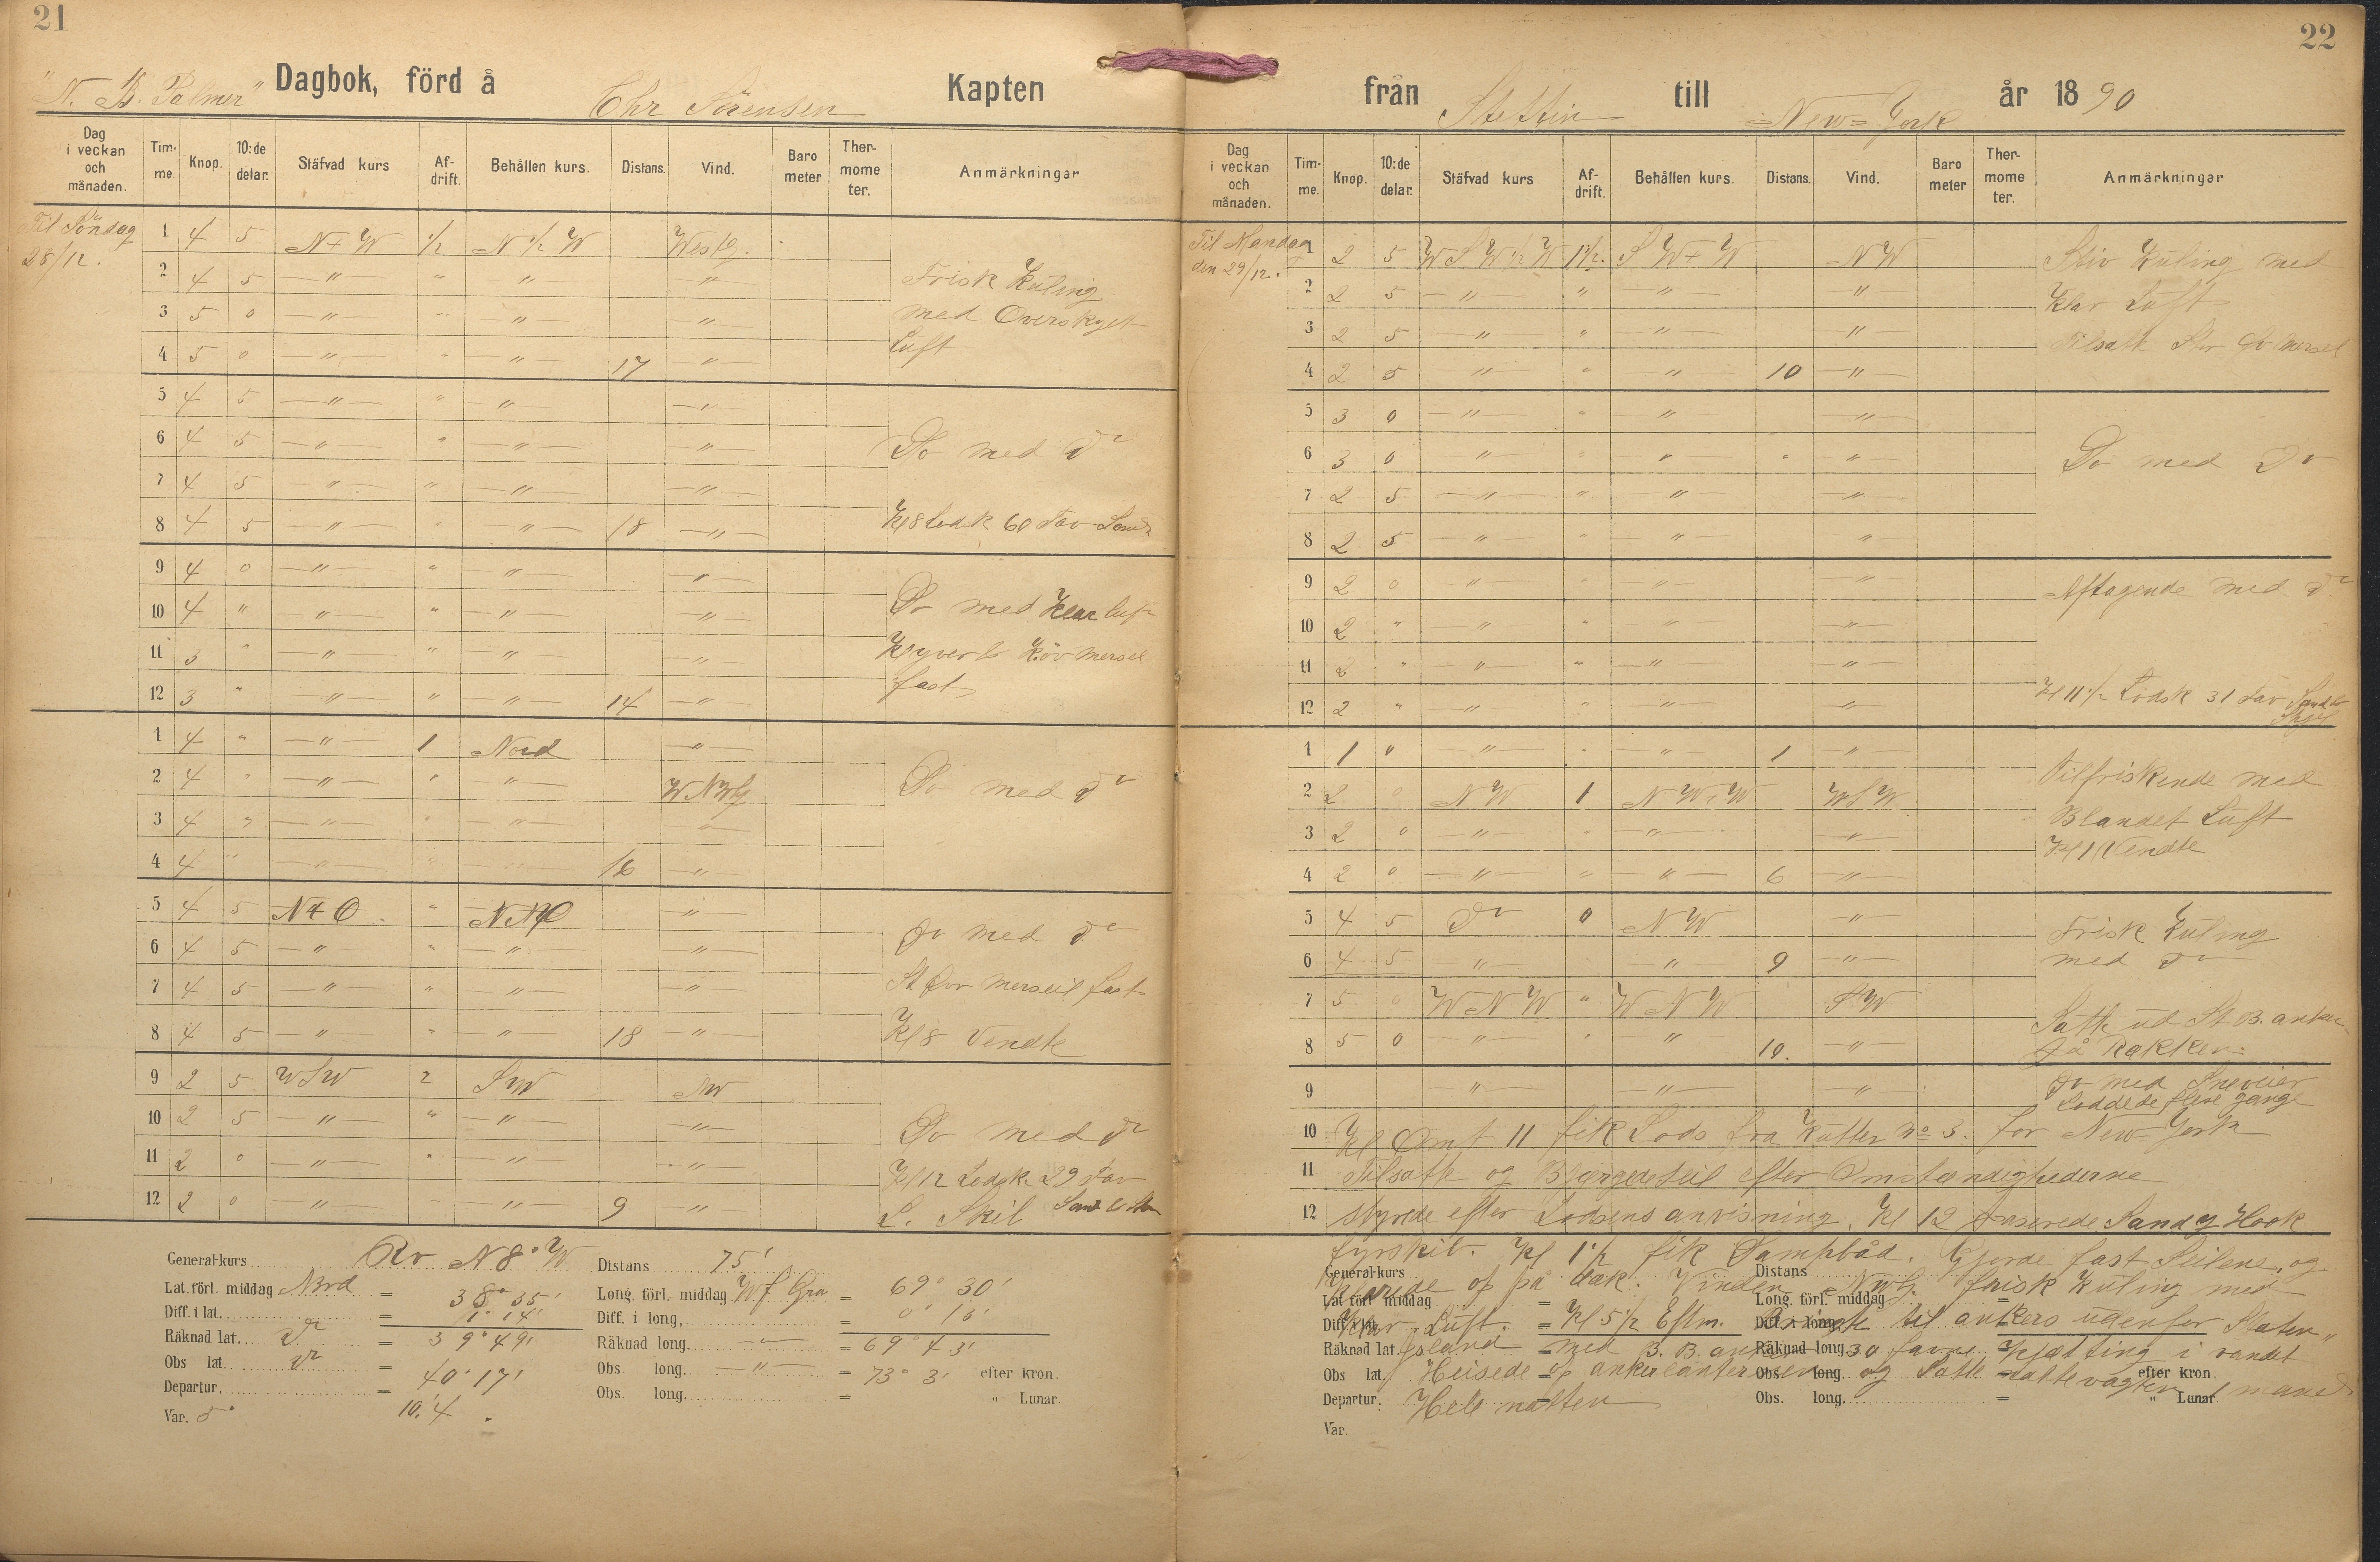 21
"N. B. Palmer" Dagbok, förd å Chr Sörensen Kapten
Dag i veckan och månaden. Tim-me. Knop. 10:de delar. Stäfvad kurs Af-drift. Behållen kurs. Distans. Vind. Baro meter Ther-mome ter. Anmärkningar
Til Söndag 28/12.
1 4 5 N+W 1/2 N 1/2 W Westlg.
2 4 5 — " — " — " — — " — Frisk Kuling
3 5 0 — " — " — " — — " — med Overskyet
4 5 0 — " — " — " — 17 — " — Luft
5 4 5 — " — " — " — — " —
6 4 5 — " — " — " — — " — Do med do
7 4 5 — " — " — " — — " —
8 4 5 — " — " — " — 18 — " — Kl 8 Lodsk 60 Fav Sand
9 4 0 — " — " — " — — " —
10 4 " — " — " — " — — " — Do med Klar luft
11 3 " — " — " — " — — " — Klyver & Röv mersel
12 3 " — " — " — " — 14 — " — fast
1 4 " — " — 1 Nord — " —
2 4 " — " — " — " — WNWlg Do med do
3 4 " — " — " — " — — " —
4 4 " — " — " — " — 16 — " —
5 4 5 N+O " NNO — " —
6 4 5 — " — " — " — — " — Do med do
7 4 5 — " — " — " — — " — St Öv Merseil fast
8 4 5 — " — " — " — 18 — " — Kl 8 Vendte
9 2 5 WSW 2 SW NW
10 2 5 — " — " — " — — " — Do med do
11 2 0 — " — " — " — — " — Kl 12 Lodsk. 29 Fav
12 2 0 — " — — " — 9 — " — S. Skil Sand &
General-kurs Rv N 8° W Distans 75'
Lat. förl. middag Nord = 38° 35' Long. förl. middag W f Gra = 69° 30'
Diff. i lat. = 1° 14' Diff. i long, = 0° 13'
Räknad lat. do = 39° 49' Räknad long. — " — = 69° 43'
Obs lat. do = 40° 17' Obs. long. — " — = 73° 3' efter kron.
Departur. = 10.'4 Obs. long. = " Lunar.
Var. 5°
22
från Stettin till New-York år 1890
Dag i veckan och månaden. Tim-me. Knop. 10:de delar. Stäfvad kurs Af-drift. Behållen kurs. Distans. Vind. Baro meter Ther-mome ter. Anmärkningar
Til Mandag den 29/12.
1 2 5 WSW 1/2 W 1 1/2. SW+W NW Stiv Kuling med
2 2 5 — " — " — " — — " — Klar Luft
3 2 5 — " — " — " — — " — Tilsatt Stor Öv Mersel
4 2 5 — " — " — " — 10 — " —
5 3 0 — " — " — " — — " —
6 3 0 — " — " " " — " — Do med Do
7 2 5 — " — " — " — — " —
8 2 5 — " — " — " — "
9 2 0 — " — " — " — — " — Aftagende med do
10 2 " — " — " — " — — " —
11 2 " — " — " — " — — " —
12 2 " — " — " — " — — " — Kl 11 1/2 Lodsk 31 Fav Sand &
1 1 0 — " — " — " — 1 — " —
2 2 0 NW 1 NW+W WSW Tilfriskende med
3 2 0 — " — " — " — — " — Blandet Luft
4 2 0 — " — " — " — 6 — " — Kl 1 Vendte
5 4 5 Do 0 NW — " — Frisk Kuling
6 4 5 — " — — " — 9 — " — med do
7 5 0 WNW " WNW SW Satte ud St B. anker
8 5 0 — " — " " 10. — " — på Rækken.
9 — " — — " — — " — Do med Sneveier
Loddede flere gange
10 Kl Omt 11 fik Lods fra Kutter No 3. for New-York
11 Tilsatte og Bjergede seil efter Omstændighederne
12 styrede efter Lodsens anvisning. Kl 12 passerede Sandy Hook
fyrskib. Kl 1 1/2 fik Dampbåd. Gjorde fast Seilene, og
klarede op på dæk. Vinden NWlg. frisk Kuling med
Klar Luft. Kl 5 1/2 Eftm. Bragte til ankers udenfor Staten
Island med B.B. anker 30 favne Kjætting i vandet
Heisede op ankerlanternen og Satte nattevagten 1 mand
Hele natten
General-kurs Distans
Lat. förl. middag = Long. förl. middag =
Diff. i lat. = Diff. i long. =
Räknad lat. = Räknad long. =
Obs lat. = Obs. long. = efter kron.
Departur. = Obs. long. = " Lunar.
Var.